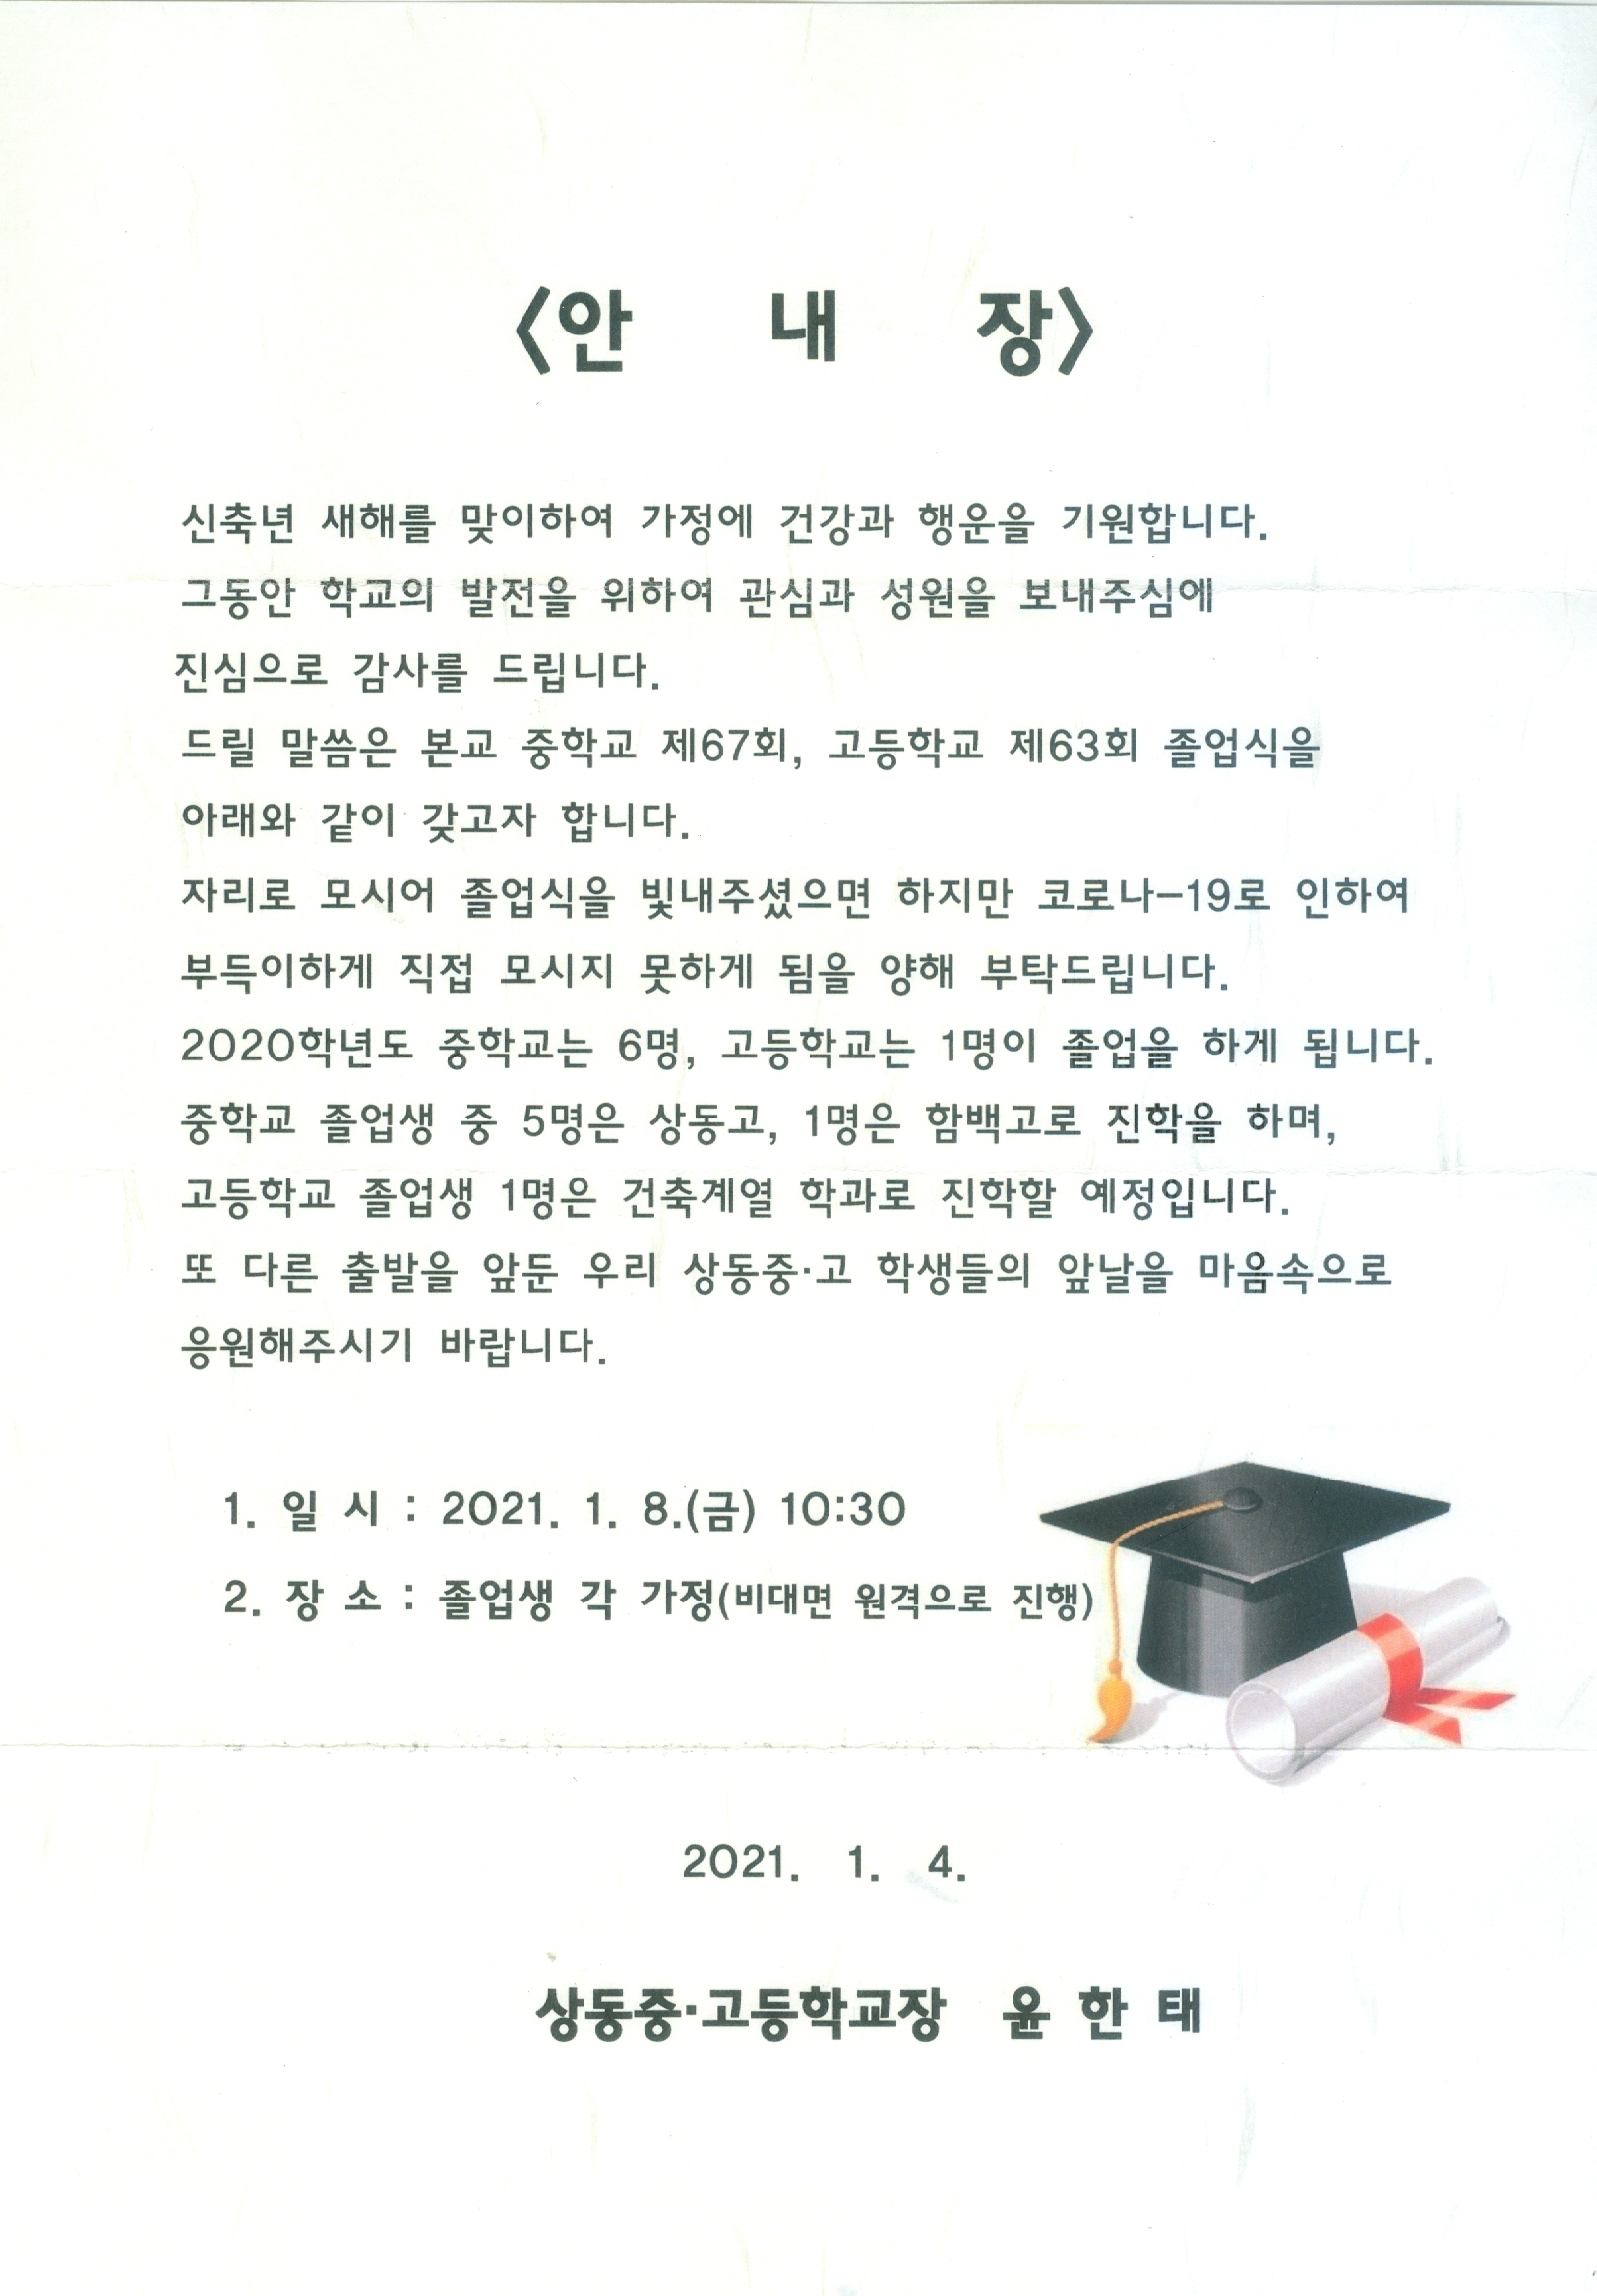 <안 내 장>
신축년 새해를 맞이하여 가정에 건강과 행운을 기원합니다.
그동안 학교의 발전을 위하여 관심과 성원을 보내주심에
진심으로 감사를 드립니다.
드릴 말씀은 본교 중학교 제67회, 고등학교 제63회 졸업식을
아래와 같이 갖고자 합니다.
자리로 모시어 졸업식을 빛내주셨으면 하지만 코로나-19로 인하여
부득이하게 직접 모시지 못하게 됨을 양해 부탁드립니다.
2020학년도 중학교는 6명, 고등학교는 1명이 졸업을 하게 됩니다.
중학교 졸업생 중 5명은 상동고, 1명은 함백고로 진학을 하며,
고등학교 졸업생 1명은 건축계열 학과로 진학할 예정입니다.
또 다른 출발을 앞둔 우리 상동중·고 학생들의 앞날을 마음속으로
응원해주시기 바랍니다.
1. 일 시 : 2021. 1. 8.(금) 10:30
2. 장 소 : 졸업생 각 가정(비대면 원격으로 진행)
2021. 1. 4.
상동중·고등학교장 윤 한 태